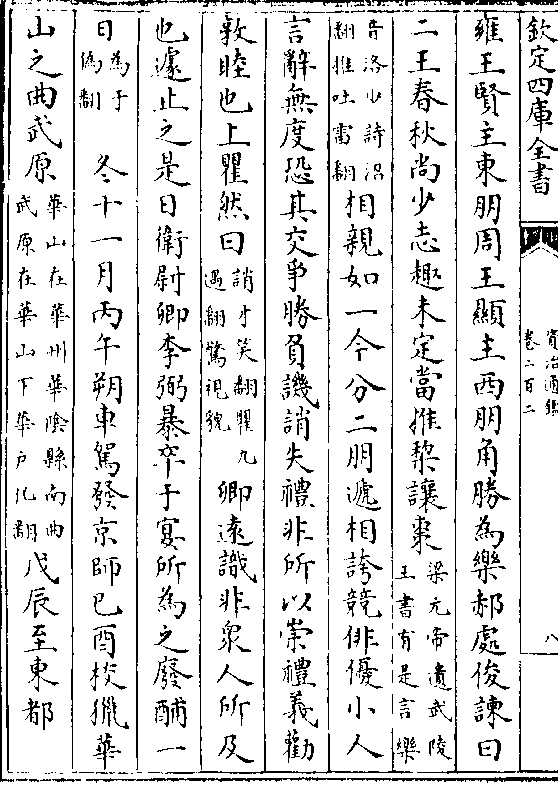 欽定四庫全書
資治通鑑
卷二百二
八
雍王賢主東朋周王顯主西朋角勝為樂郝處俊諫曰
二王春秋尚少志趣未定當推棃讓棗梁元帝遺武陵王書有是言樂
音洛少詩沼翻推吐雷翻相親如一今分二朋遞相誇競俳優小人
言辭無度恐其交爭勝負譏誚失禮非所以崇禮義勸
敦睦也上瞿然曰誚才笑翻瞿九遇翻驚視貌卿遠識非衆人所及
也遽止之是日衛尉卿李弼暴卒于宴所為之廢酺一
日為于偽翻冬十一月丙午朔車駕發京師己酉校獵華
山之曲武原華山在華州華陰縣南曲武原在華山下華戶化翻戊辰至東都